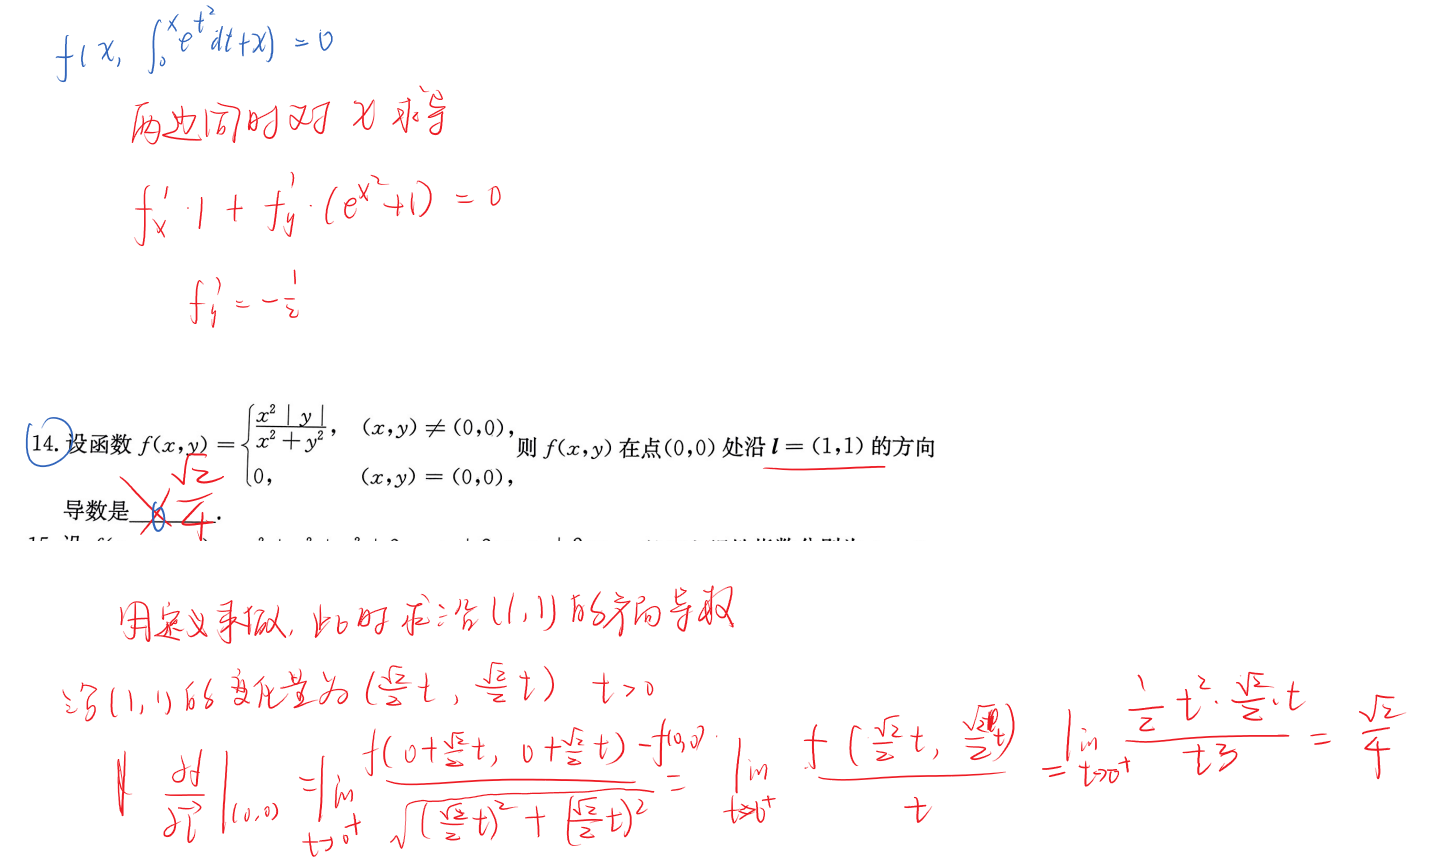 f(x, ∫₀ˣ e^{t²}dt+x) = 0
两边同时对 x 求导
f'ₓ·1 + f'_y·(e^{x²}+1) = 0
f'_y = -1/2
14. 设函数 f(x,y) = { x²|y| / (x²+y²), (x,y)≠(0,0), 0, (x,y)=(0,0), 则 f(x,y) 在点(0,0) 处沿 l=(1,1) 的方向
导数是 0 √2/4 .
用定义来做, 此时求沿(1,1)的方向导数
沿(1,1)的变化量为(√2/2 t, √2/2 t) t>0
∂f/∂l |(0,0) = lim t→0⁺ [f(0+√2/2 t, 0+√2/2 t) - f(0,0)] / √((√2/2 t)² + (√2/2 t)²) = lim t→0⁺ f(√2/2 t, √2/2 t) / t = lim t→0⁺ (1/2 t²·√2/2·t) / t3 = √2/4